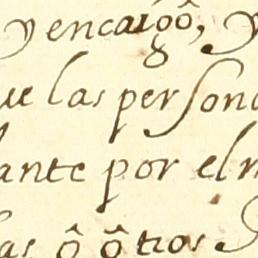 y encargô, y
ue las persona
ante por el m
las ô ôtros